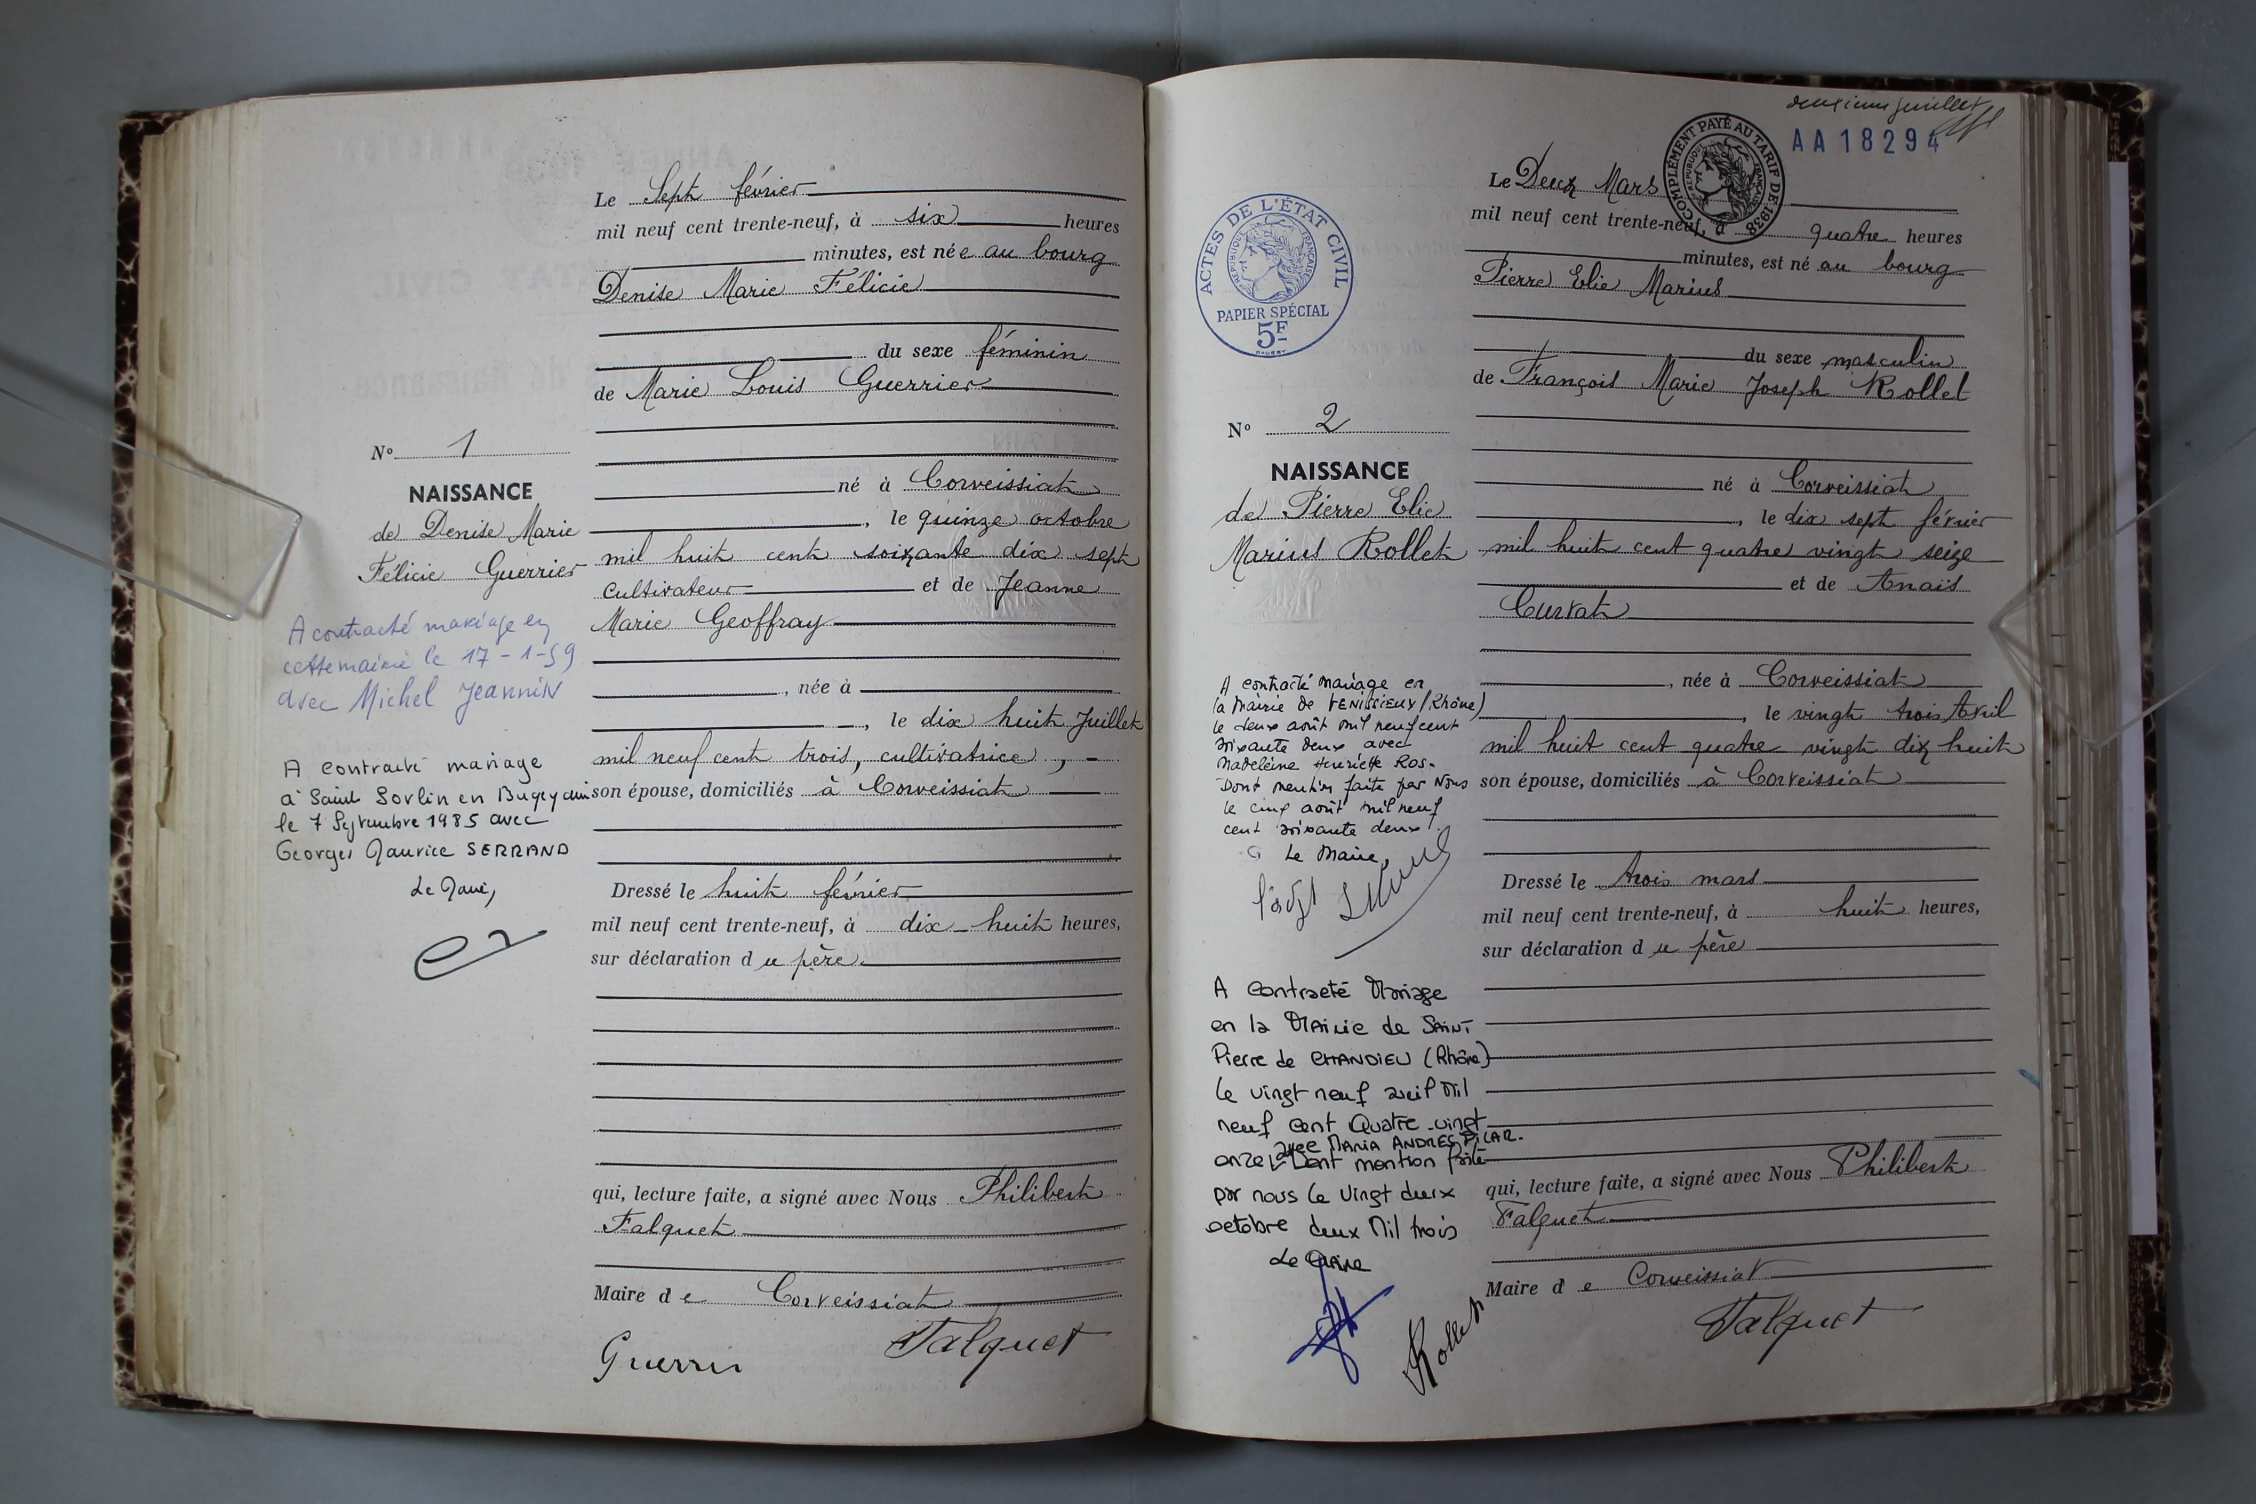 Le Sept février
mil neuf cent trente-neuf, à six heures
minutes, est née au bourg
Denise Marie Félicie
du sexe féminin
de Marie Louis Guerrier
né à Corveissiat
, le quinze octobre
mil huit cent soixante dix sept
cultivateur et de Jeanne
Marie Geoffray
, née à
, le dix huit Juillet
mil neuf cent trois, cultivatrice,
son épouse, domiciliés à Corveissiat
Dressé le huit février
mil neuf cent trente-neuf, à dix-huit heures,
sur déclaration du père.
qui, lecture faite, a signé avec Nous Philibert
Falquet
Maire de Corveissiat
Guerrier
Falquet
N° 1
NAISSANCE
de Denise Marie
Félicie Guerrier
A contracté mariage en
cette mairie le 17-1-59
avec Michel Jeannin
A contracté mariage
à Saint Sorlin en Bugey ain
le 7 Septembre 1985 avec
Georges Maurice SERRAND
Le Maire,
deuxième feuillet
AA 18294
COMPLÉMENT PAYÉ AU TARIF DE 1938
RÉPUBLIQUE FRANÇAISE
ACTES DE L'ÉTAT CIVIL
RÉPUBLIQUE FRANÇAISE
PAPIER SPÉCIAL
5F
Le Deux Mars
mil neuf cent trente-neuf, à quatre heures
minutes, est né au bourg
Pierre Elie Marius
du sexe masculin
de François Marie Joseph Rollet
né à Corveissiat
, le dix sept février
mil huit cent quatre vingt seize
et de Anaïs
Curvat
, née à Corveissiat
, le vingt trois Avril
mil huit cent quatre vingt dix huit
son épouse, domiciliés à Corveissiat
Dressé le trois mars
mil neuf cent trente-neuf, à huit heures,
sur déclaration du père
qui, lecture faite, a signé avec Nous Philibert
Falquet
Maire de Corveissiat
Falquet
Rollet
N° 2
NAISSANCE
de Pierre Elie
Marius Rollet
A contracté mariage en
la Mairie de VENISSIEUX (Rhône)
le deux août mil neuf cent
soixante deux avec
Madeleine Henriette Ros.
Dont mention faite par Nous
le cinq août mil neuf
cent soixante deux.
Le Maire,
A contracté Mariage
en la Mairie de SAINT
Pierre de CHANDIEU (Rhône)
le vingt neuf avril Mil
neuf cent Quatre-vingt
avec MARIA ANDRES PILAR.
onze Dont mention faite
par nous le vingt deux
octobre deux Mil trois
Le Maire